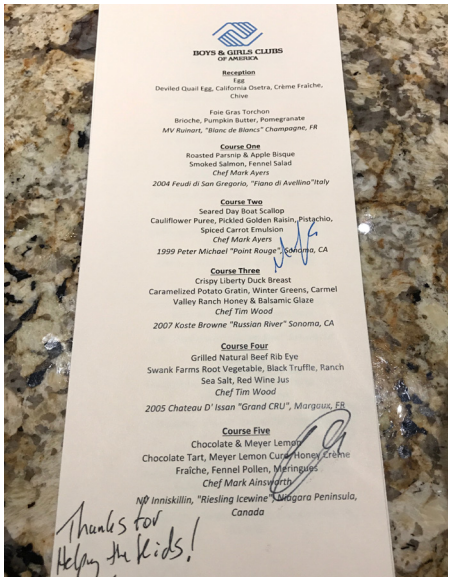 BOYS & GIRLS CLUBS
OF AMERICA
Reception
Egg
Deviled Quail Egg, California Osetra, Crème Fraîche,
Chive
Foie Gras Torchon
Brioche, Pumpkin Butter, Pomegranate
MV Ruinart, "Blanc de Blancs" Champagne, FR
Course One
Roasted Parsnip & Apple Bisque
Smoked Salmon, Fennel Salad
Chef Mark Ayers
2004 Feudi di San Gregorio, "Fiano di Avellino"Italy
Course Two
Seared Day Boat Scallop
Cauliflower Puree, Pickled Golden Raisin, Pistachio,
Spiced Carrot Emulsion
Chef Mark Ayers
1999 Peter Michael "Point Rouge", Sonoma, CA
Course Three
Crispy Liberty Duck Breast
Caramelized Potato Gratin, Winter Greens, Carmel
Valley Ranch Honey & Balsamic Glaze
Chef Tim Wood
2007 Koste Browne "Russian River" Sonoma, CA
Course Four
Grilled Natural Beef Rib Eye
Swank Farms Root Vegetable, Black Truffle, Ranch
Sea Salt, Red Wine Jus
Chef Tim Wood
2005 Chateau D' Issan "Grand CRU", Margaux, FR
Course Five
Chocolate & Meyer Lemon
Chocolate Tart, Meyer Lemon Curd, Honey Crème
Fraîche, Fennel Pollen, Meringues
Chef Mark Ainsworth
NV Inniskillin, "Riesling Icewine", Niagara Peninsula,
Canada
Thanks for
Helping the Kids!